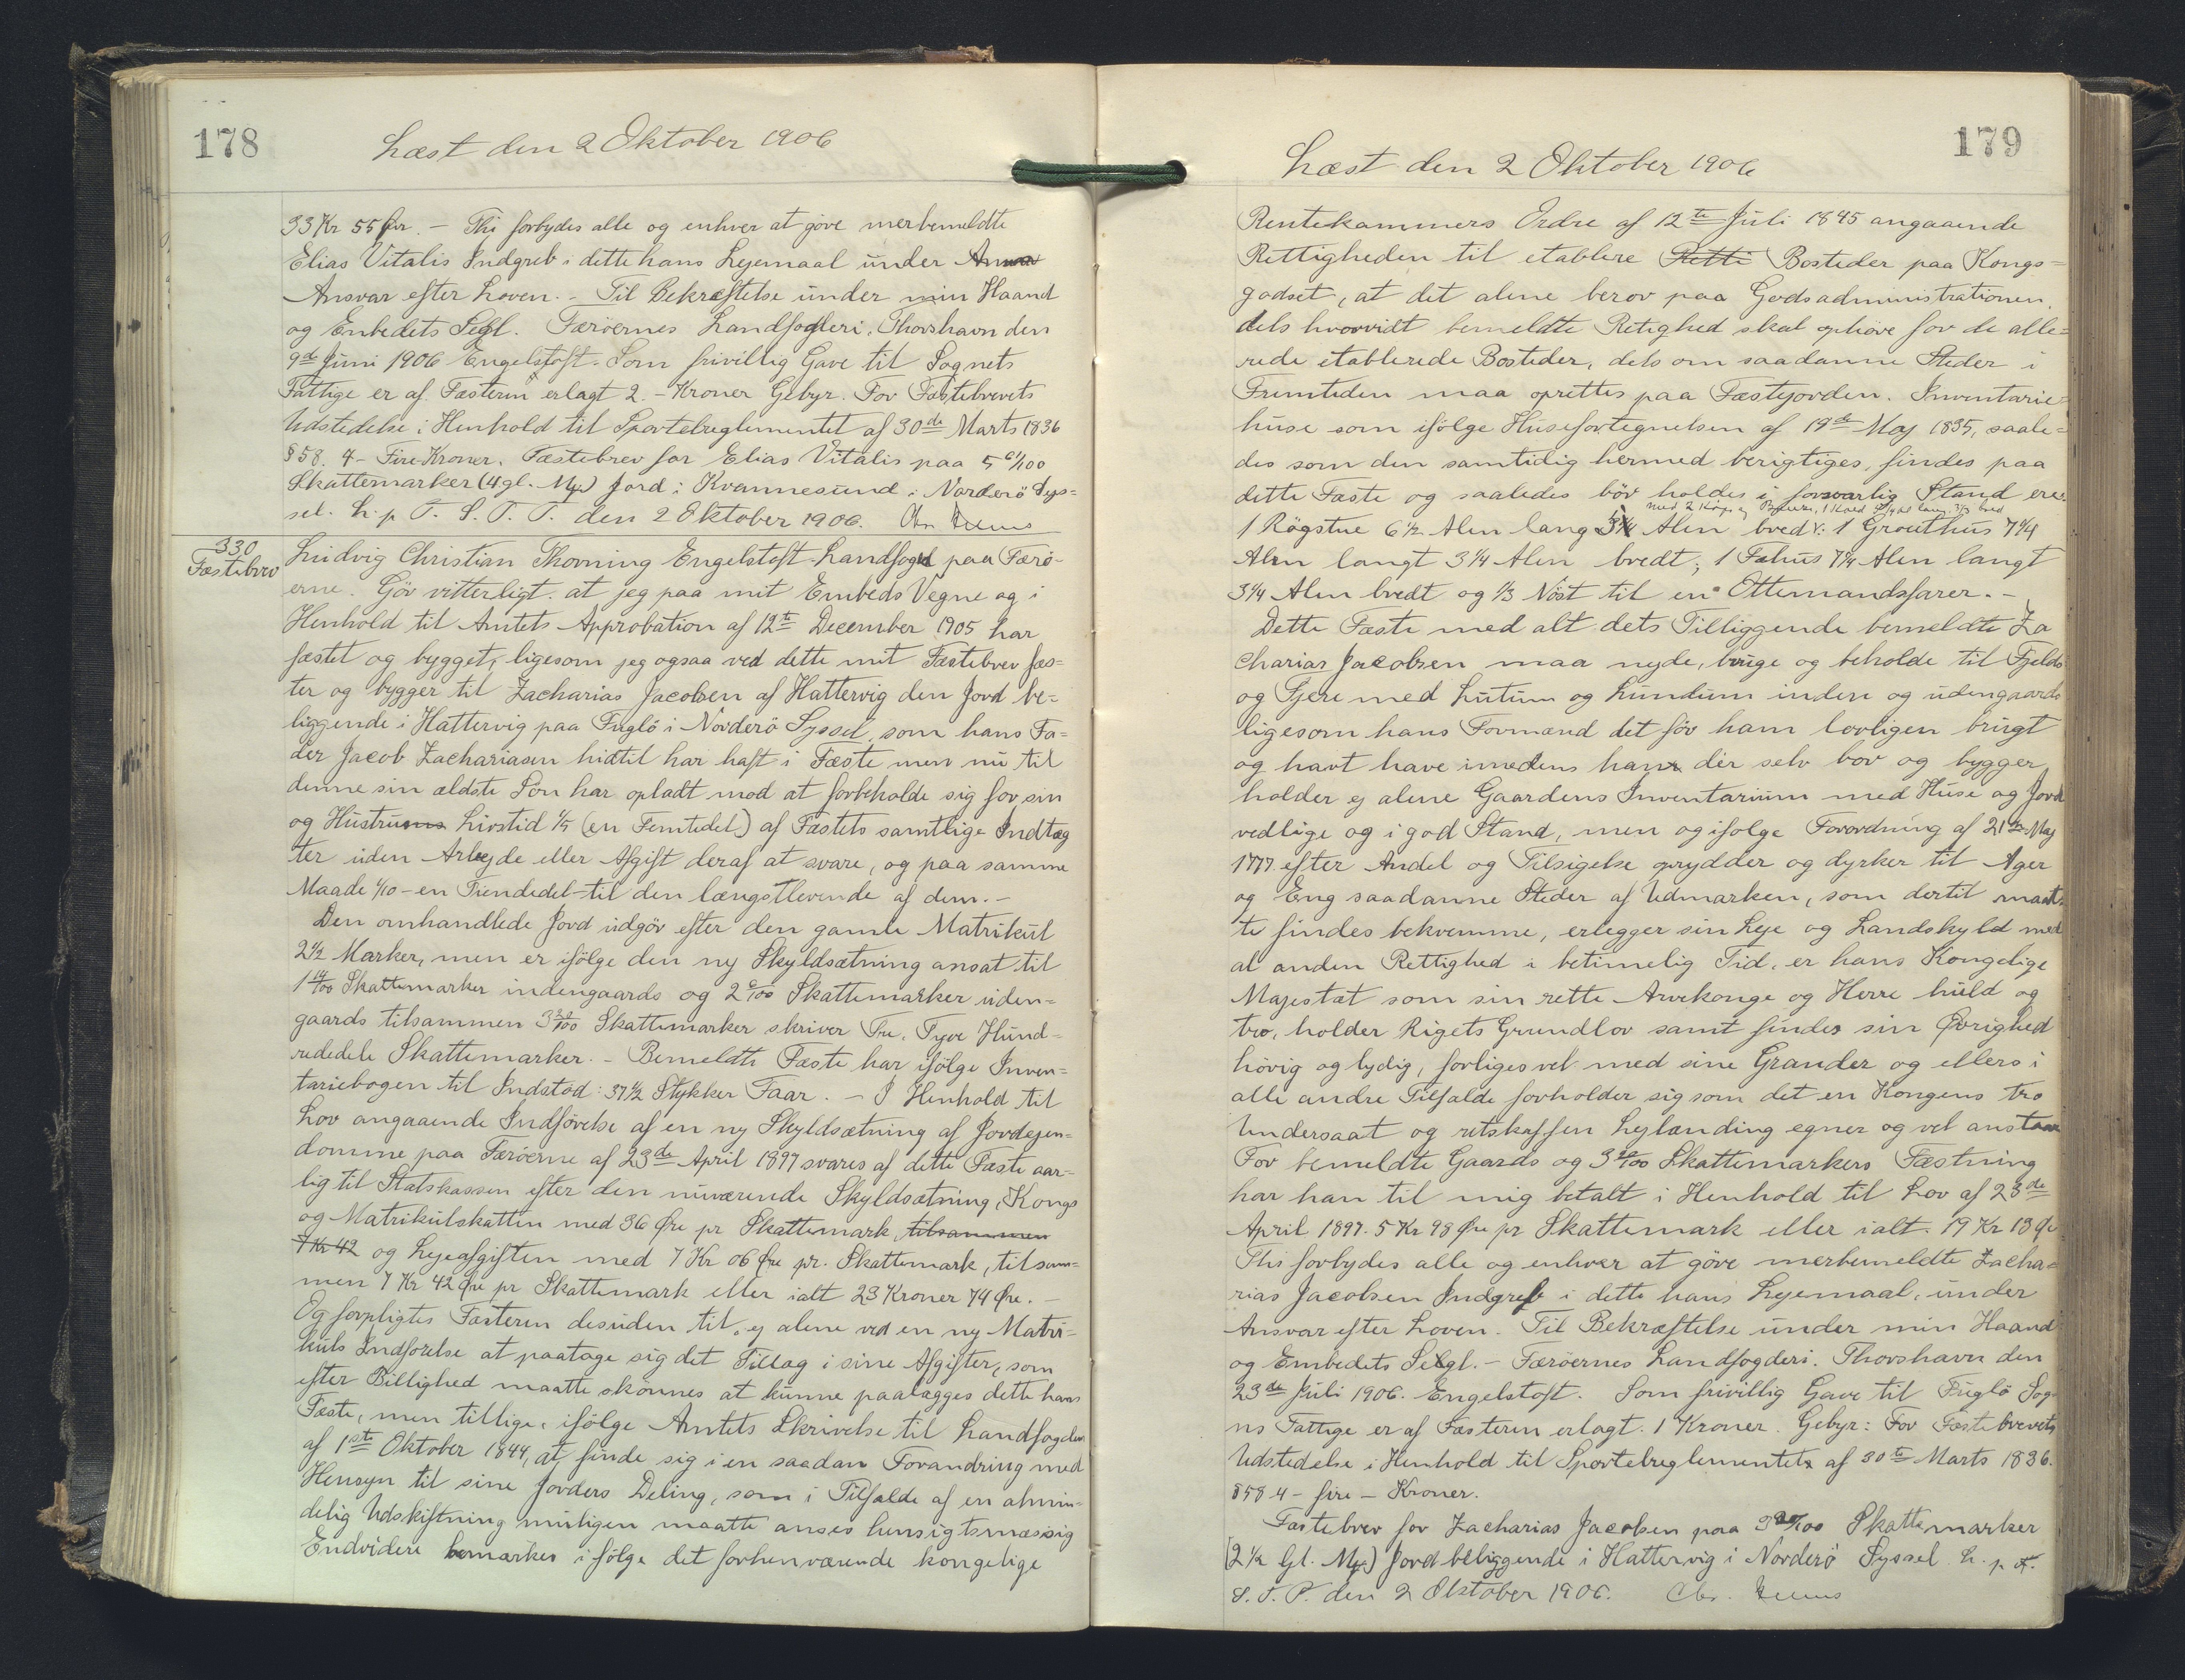 178
Læst den 2 Oktober 1906
33 Kr 55 Øre. – Thi forbydes alle og enhver at göre merbemeldte
Elias Vitalis Indgreb i dette hans Lejemaal under
Ansvar efter Loven. – Til Bekræftelse under min Haand
og Embedets Segl. Færöernes Landfogderi. Thorshavn den
9de Juni 1906 Engelstoft. Som frivillig Gave til Sognets
Fattige er af Fæsteren erlagt 2. – Kroner Gebyr. For Fæstebrevets
Udstedelse i Henhold til Sportelreglementet af 30de Marts 1836
§ 58. 4 – Fire Kroner. Fæstebrev for Elias Vitalis paa 5 61/100
Skattemarker (4 gl. Mk) Jord i Kvannesund i Norderö Sys=
sel. L. p F. S. T. T. den 2 Oktober 1906.
330
Fæstebrev
Ludvig Christian Thorning Engelstoft Landfoged paa Færö-
erne. Gör vitterligt. at jeg paa mit Embeds Vegne og i
Henhold til Amtets Approbation af 12te December 1905 har
fæstet og bygget, ligesom jeg ogsaa ved dette mit Fæstebrev fæs=
ter og bygger til Zacharias Jacobsen af Hattervig den Jord be-
liggende i Hattervig paa Fuglö i Norderö Syssel, som hans Fa=
der Jacob Zachariasen hidtil har haft i Fæste men nu til
denne sin ældste Sön har opladt mod at forbeholde sig for sin
og Hustrus Livstid 1/5 (en Femtedel) af Fæstets samtlige Indtæg
ter uden Arbejde eller Afgift deraf at svare, og paa samme
Maade 1/10 – en Tiendedel – til den længstlevende af dem. –
Den omhandlede Jord udgör efter den gamle Matrikul
2 1/2 Marker, men er ifölge den ny Skyldsætning ansat til
1 14/100 Skattemarker indengaards og 2 6/100 Skattemarker uden=
gaards tilsammen 3 20/100 Skattemarker skriver Tre, Tyve Hund=
rededele Skattemarker. – Bemeldte Fæste har ifölge Inven=
tariebogen til Indstød: 37 1/2 Stykker Faar. – I Henhold til
Lov angaaende Indförelse af en ny Skyldsætning af Jordejen=
domme paa Færöerne af 23de April 1897 svares af dette Fæste aar=
lig til Statskassen efter den nuværende Skyldsætning, Kongs
og Matrikulskatten med 36 Øre pr Skattemark, tilsammen
7 Kr 42 og Lejeafgiften med 7 Kr 06 Øre pr. Skattemark, tilsam=
men 7 Kr 42 Øre pr Skattemark eller ialt 23 Kroner 74 Øre. –
Og forpligtes Fæsteren desuden til, ej alene ved en ny Matri=
kuls Indförelse at paatage sig det Tillæg i sine Afgifter, som
efter Billighed maatte skönnes at kunne paalægges dette hans
Fæste, men tillige, ifölge Amtets Skrivelse til Landfogden
af 1ste Oktober 1844, at finde sig i en saadan Forandring med
Hensyn til sine Jorders Deling, som i Tilfælde af en almin=
delig Udskiftning muligen maatte anses hensigtsmæssig
Endvidere bemærkes ifölge det forhenværende kongelige
179
Læst den 2 Oktober 1906
Rentekammers Ordre af 12te Juli 1845 angaaende
Rettigheden til etablere Retti Bosteder paa Kongs=
godset, at det alene beror paa Godsadministrationen,
dels hvorvidt bemeldte Retighed skal ophöre for de alle=
rede etablerede Bosteder, dels om saadanne Steder i
Fremtiden maa oprettes paa Fæstejorden. Inventarie=
huse som ifölge Husefortegnelsen af 19de Maj 1835, saale=
des som den samtidig hermed berigtiges, findes paa
dette Fæste og saaledes bör holdes i forsvarlig Stand ere:
1 Rögstue 6 1/2 Alen lang Alen bred 1 Grouthus 7 1/4
Alen langt 3 1/4 Alen bredt; 1 Fæhus 7 1/4 Alen langt
3 1/4 Alen bredt og 1/3 Nöst til en Ottemandsfarer. –
Dette Fæste med alt dets Tilliggende bemeldte Za
charias Jacobsen maa nyde, bruge og beholde til Fjelds
og Fjere med Lutum og Lundum inden og udengaards
ligesom hans Formænd det för ham lovligen brugt
og havt have imedens han der selv bor og bygger,
holder ej alene Gaardens Inventarium med Huse og Jord
vedlige og i god Stand, men og ifolge Forordning af 21de Maj
1777 efter Andel og Tilsigelse oprydder og dyrker til Ager
og Eng saadanne Steder af Udmarken, som dertil maat-
te findes bekvemme, erlegger sin Leje og Landskyld med
al anden Rettighed i betimelig Tid, er hans Kongelige
Majestæt som sin rette Arvekonge og Herre huld og
tro, holder Rigets Grundlov samt findes sin Øvrighed
hörig og lydig, forliges vel med sine Grander og ellers i
alle andre Tilfælde forholder sig som det en Kongens tro
Undersaat og retskaffen Lejlænding egner og vel anstaar
For bemeldte Gaards og 3 20/100 Skattemarkers Fæstning
har han til mig betalt i Henhold til Lov af 23de
April 1897. 5 Kr 98 Øre pr Skattemark eller ialt. 19 Kr 13 Ør
Thi forbydes alle og enhver at göre merbemeldte Zacha=
rias Jacobsen Indgreb i dette hans Lejemaal, under
Ansvar efter Loven. Til Bekræftelse under min Haand
og Embedets Segl. – Færöernes Landfogderi. Thorshavn den
23de Juli 1906. Engelstoft. Som frivillig Gave til Fuglö Sog-
ns Fattige er af Fæsteren erlagt. 1 Kroner. Gebyr: For Fæstebrevets
Udstedelse i Henhold til Sportelreglementet af 30te Marts 1836.
§ 58 4 – fire – Kroner.
Fæstebrev for Zacharias Jacobsen paa 3 20/100 Skattemarker
(2 1/2 Gl. Mk.) Jord beliggende i Hattervig i Norderö Syssel. L. p F.
S. T. P. den 2 Oktober 1906.